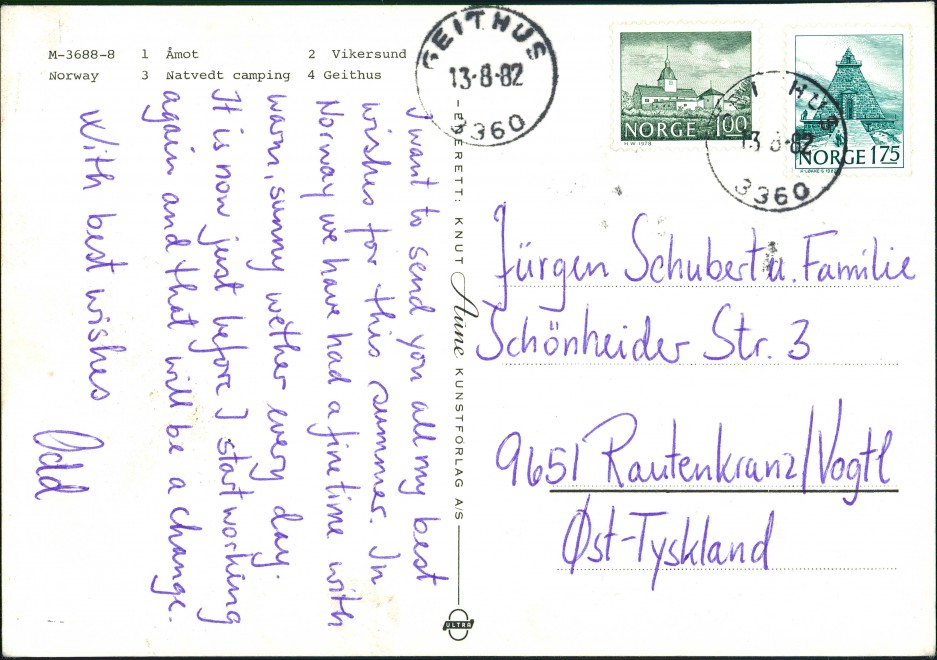 M-3688-8 1 Åmot 2 Vikersund
Norway 3 Natvedt camping 4 Geithus
I want to send you all my best
wishes for this summer. In
Norway we have had a fine time with
warm, sunny wether every day.
It is now just before I start working
again and that will be a change.
With best wishes
Odd
ENERETT: KNUT Aune KUNSTFORLAG A/S
ULTRA
GEITHUS
13-8-82
3360
NORGE 100
H W 1978
NORGE 175
GEITHUS
13-8-82
3360
Jürgen Schubert u. Familie
Schönheider Str. 3
9651 Rautenkranz/Vogtl
Øst-Tyskland